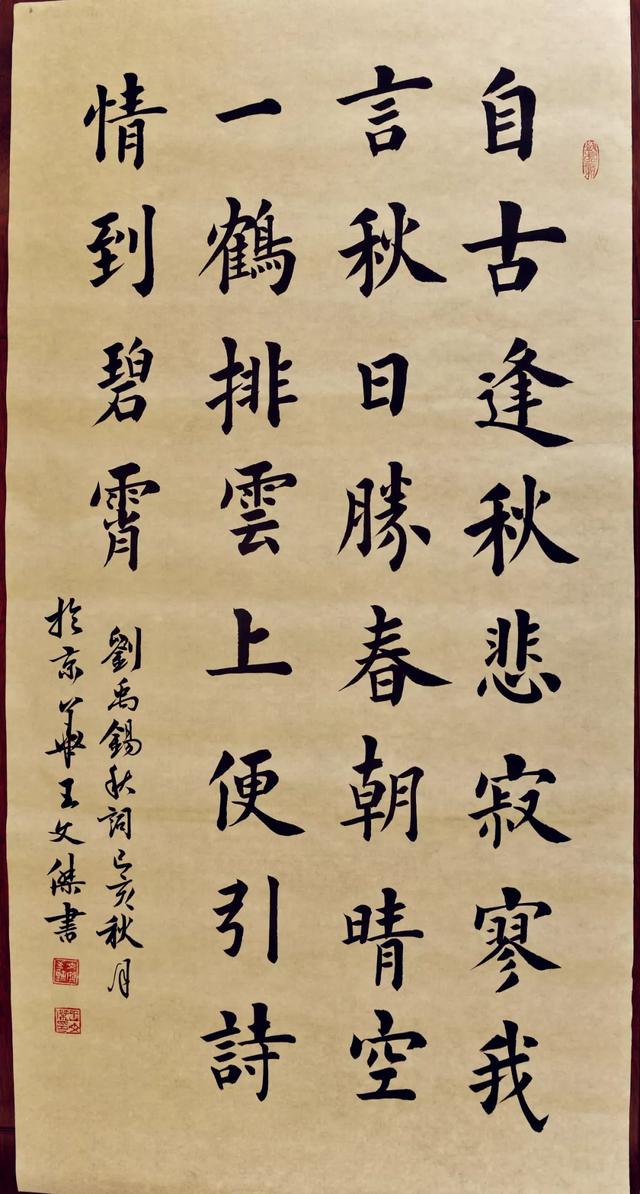 自古逢秋悲寂寥我
言秋日勝春朝晴空
一鶴排雲上便引詩
情到碧霄
劉禹錫秋詞己亥秋月
於京華王文傑書